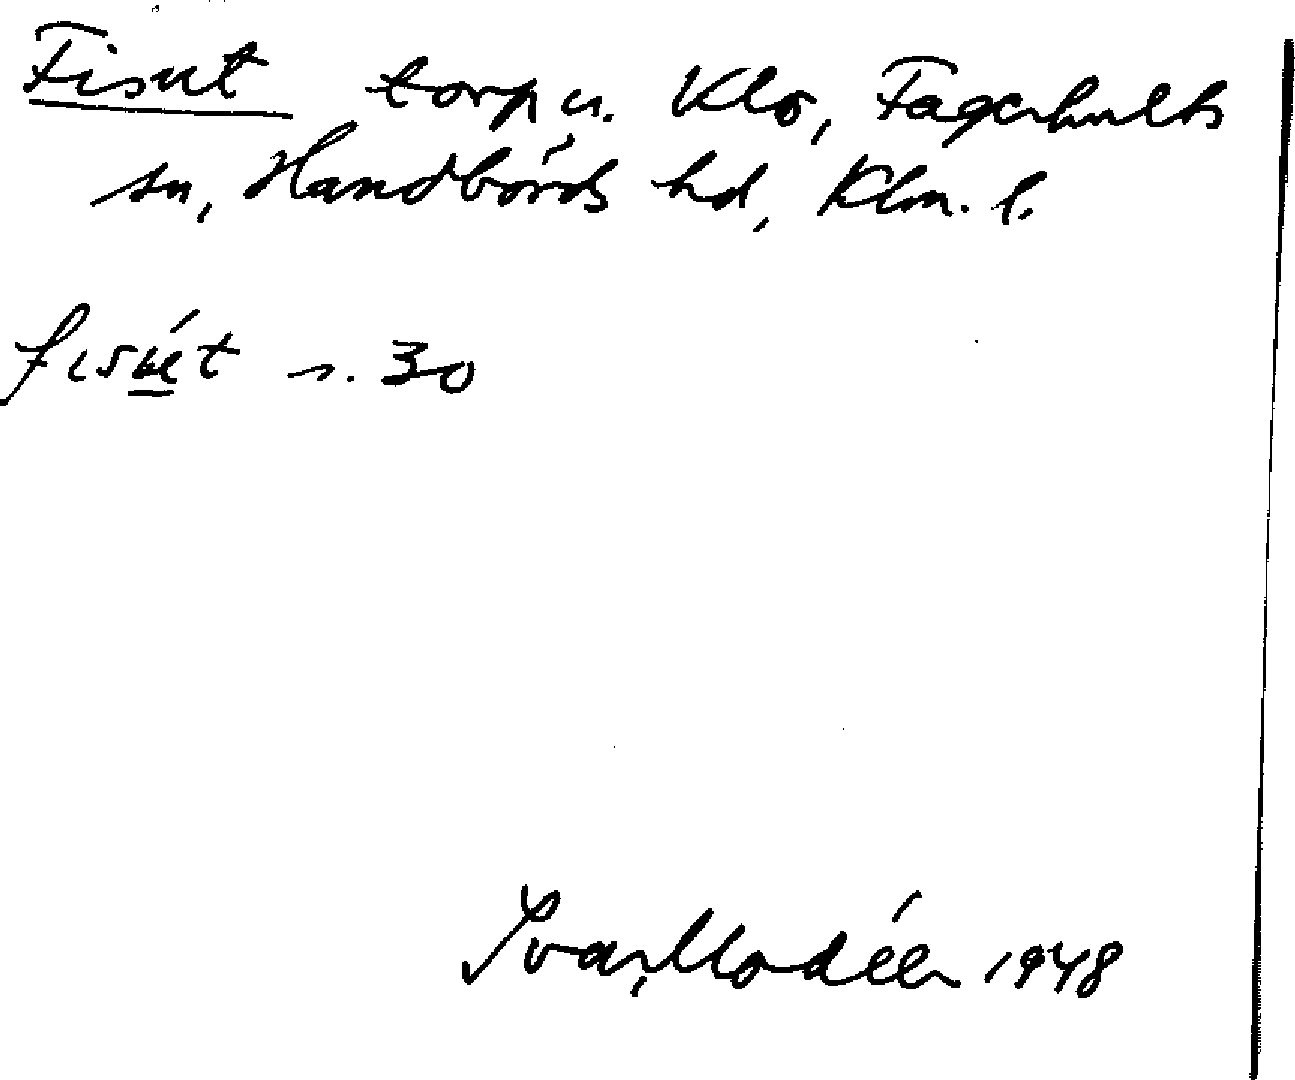 Fisut torp u. Klo, Fagerhults
sn, Handbörds hd, Klm. l.
fisút s. 30
Ivar Modéer 1948